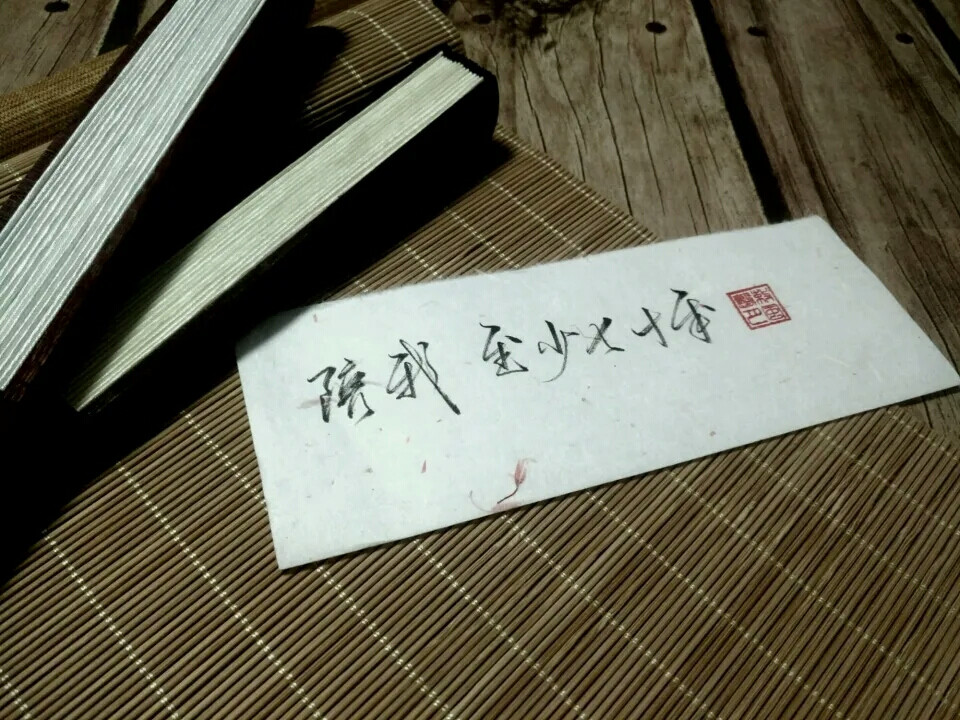 陪我 至少七十年